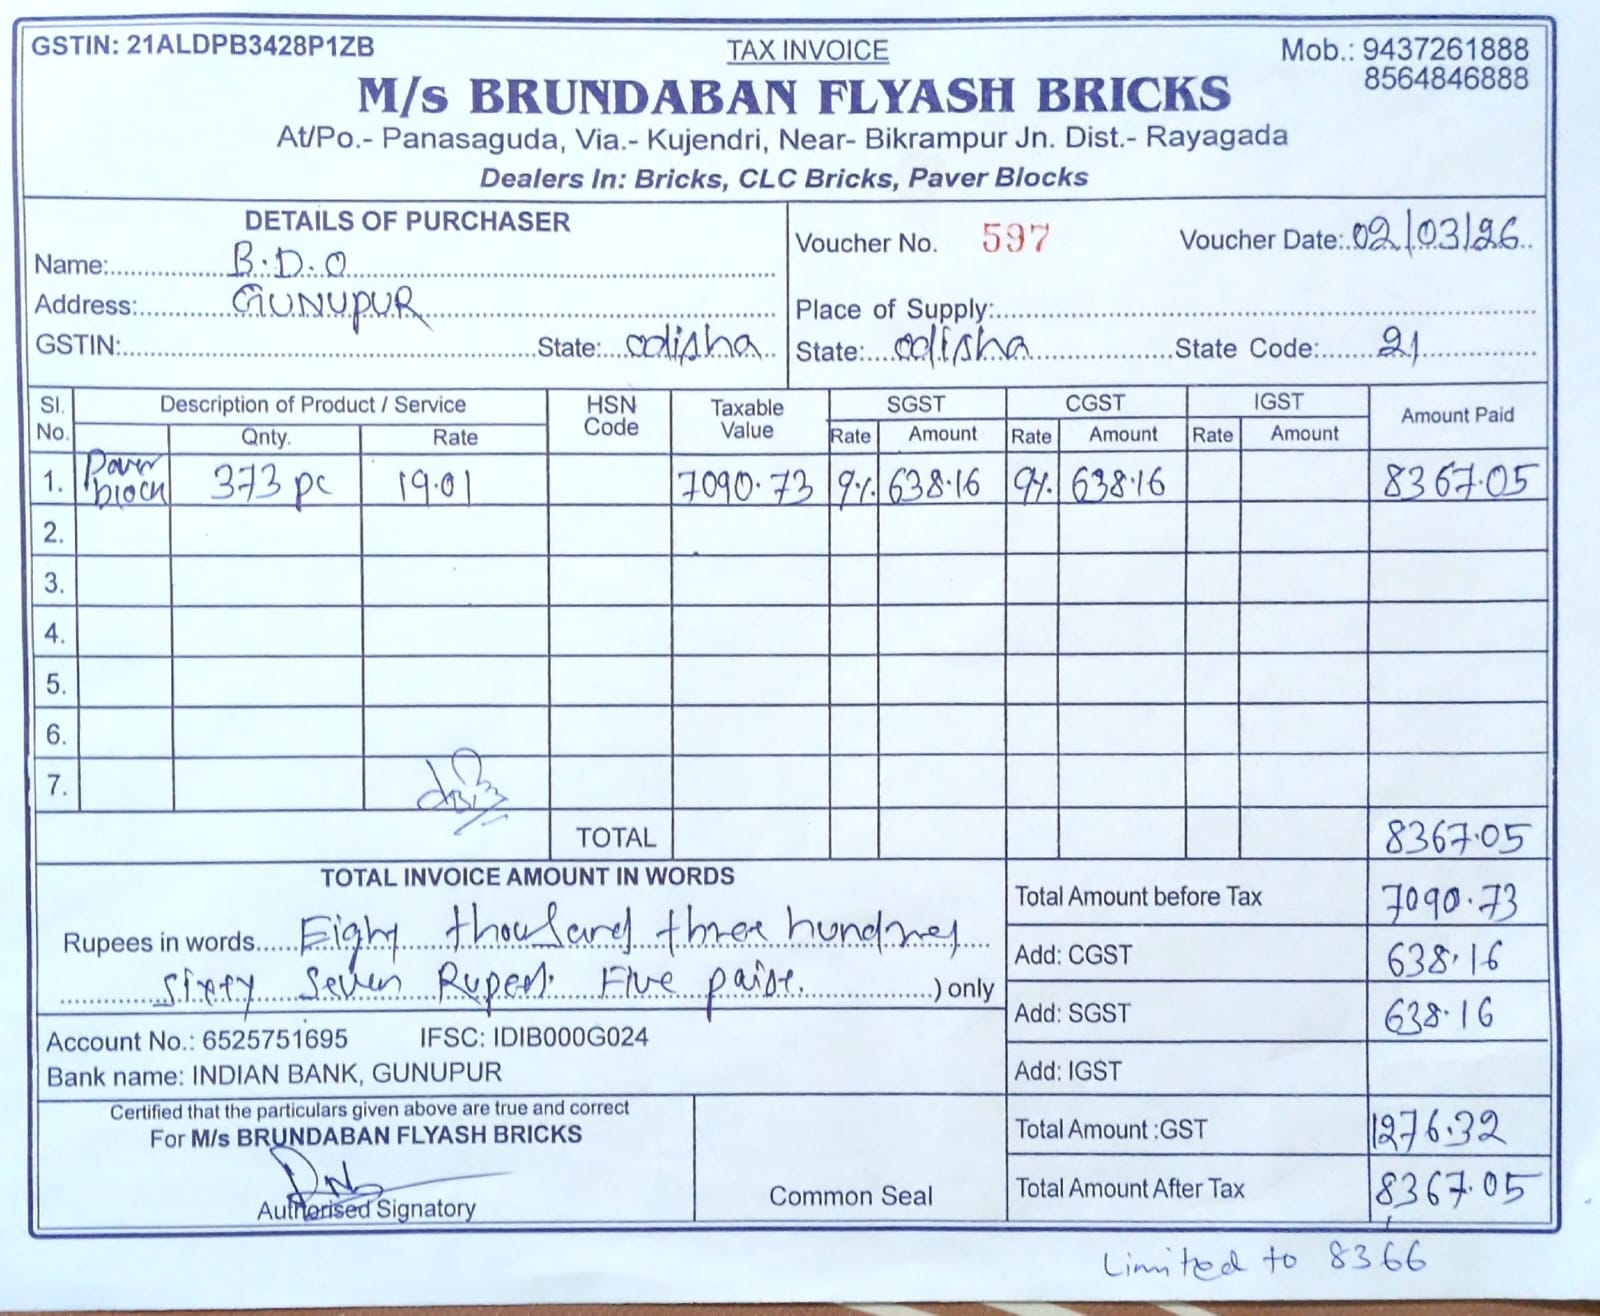 GSTIN: 21ALDPB3428P1ZB
TAX INVOICE
Mob.: 9437261888
8564846888
M/s BRUNDABAN FLYASH BRICKS
At/Po.- Panasaguda, Via.- Kujendri, Near- Bikrampur Jn. Dist.- Rayagada
Dealers In: Bricks, CLC Bricks, Paver Blocks
DETAILS OF PURCHASER
Name: B.D.O
Address: GUNUPUR
GSTIN: State: odisha
Voucher No. 597 Voucher Date: 02/03/26
Place of Supply:
State: odisha State Code: 21
Sl. No. Description of Product / Service HSN Code Taxable Value SGST CGST IGST Amount Paid
Qnty. Rate Rate Amount Rate Amount Rate Amount
1. Paver block 373 pc 19.01 7090.73 9% 638.16 9% 638.16 8367.05
2.
3.
4.
5.
6.
7.
TOTAL 8367.05
TOTAL INVOICE AMOUNT IN WORDS
Rupees in words Eighy thousand three hundred
sixty seven Rupees. Five paise. ) only
Account No.: 6525751695 IFSC: IDIB000G024
Bank name: INDIAN BANK, GUNUPUR
Certified that the particulars given above are true and correct
For M/s BRUNDABAN FLYASH BRICKS
Authorised Signatory
Common Seal
Total Amount before Tax 7090.73
Add: CGST 638.16
Add: SGST 638.16
Add: IGST
Total Amount :GST 1276.32
Total Amount After Tax 8367.05
Limited to 8366